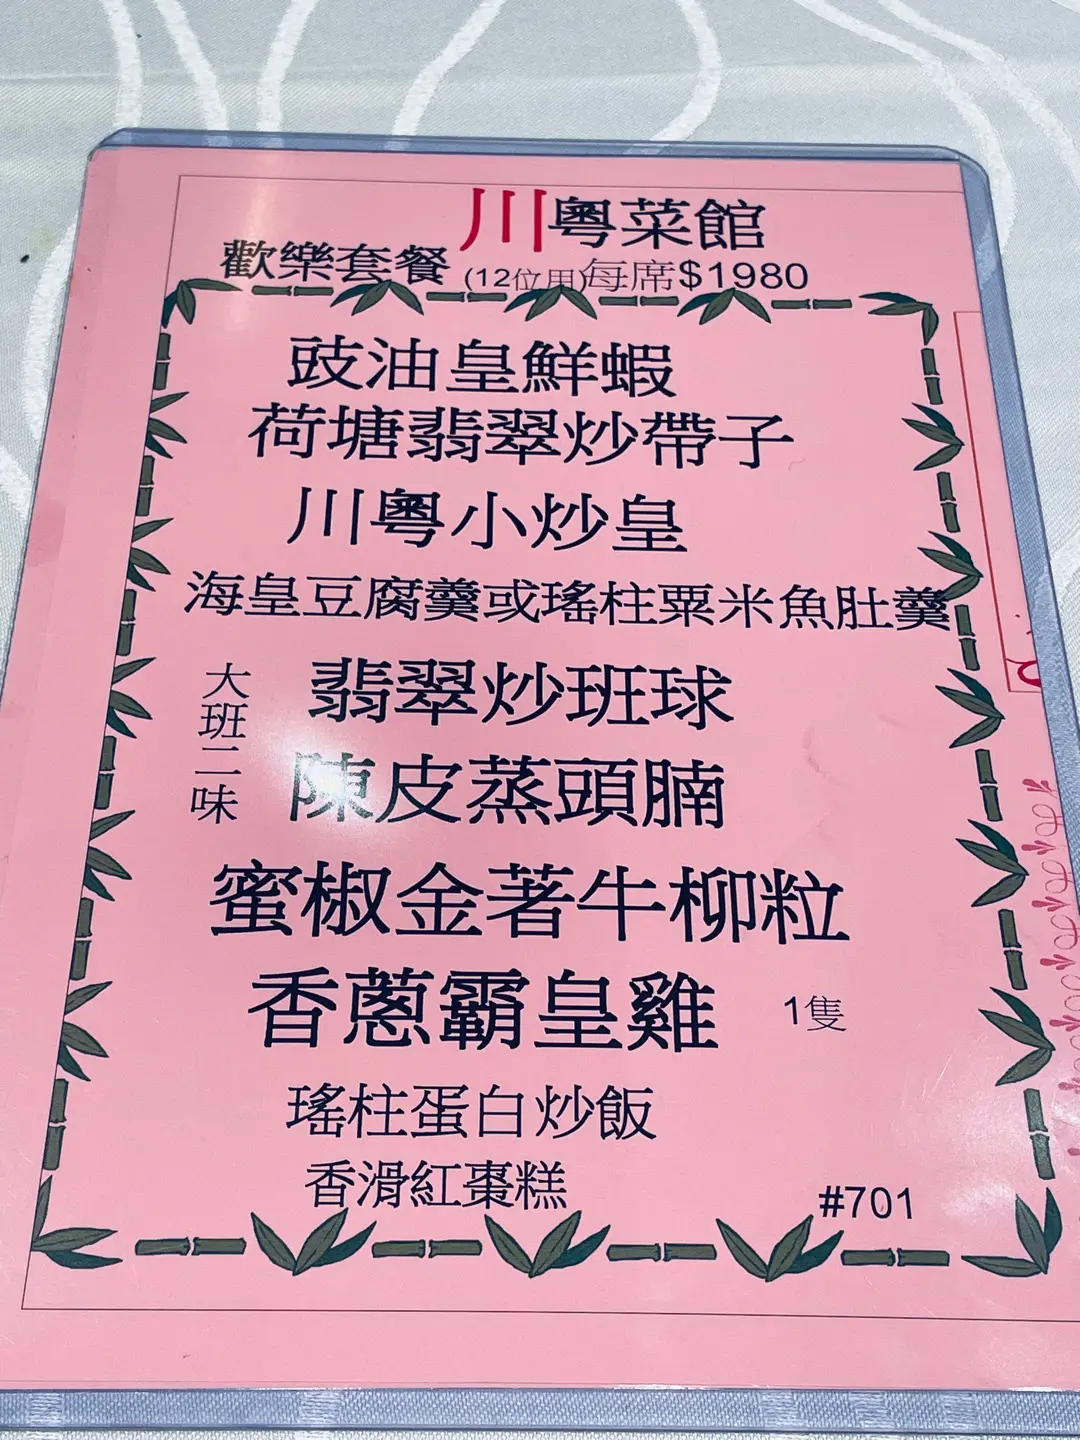 川粵菜館
歡樂套餐 (12位用)每席$1980
豉油皇鮮蝦
荷塘翡翠炒帶子
川粵小炒皇
海皇豆腐羹或瑤柱粟米魚肚羹
大班二味
翡翠炒班球
陳皮蒸頭腩
蜜椒金著牛柳粒
香蔥霸皇雞 1隻
瑤柱蛋白炒飯
香滑紅棗糕
#701